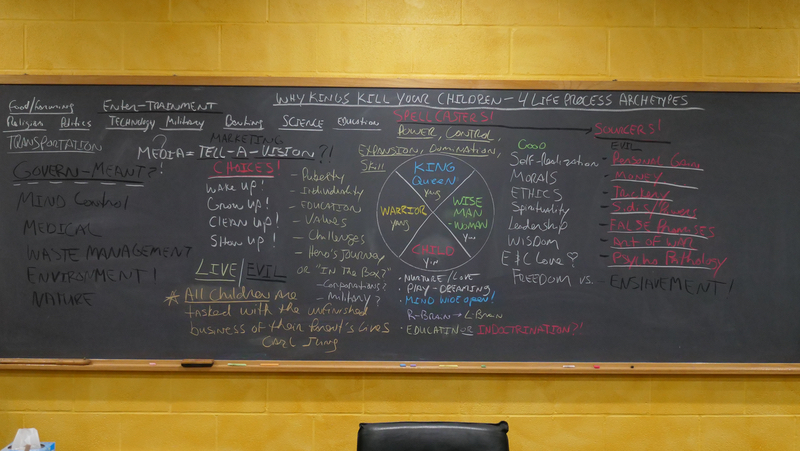 WHY KINGS KILL YOUR CHILDREN - 4 LIFE PROCESS ARCHETYPES
Food/Farming
ENTER-TRAINMENT
Religion Politics TECHNOLOGY Military Banking SCIENCE Education
SPELLCASTERS!
TRANSPORTATION
MARKETING
MEDIA = TELL-A-VISION?!
GOVERN-MEANT?!
MIND Control
MEDICAL
WASTE MANAGEMENT
ENVIRONMENT!
NATURE
CHOICES!
WAKE UP!
Grow UP!
CLEAN UP!
SHOW UP!
LIVE/EVIL
* All Children are
tasked with the unfinished
business of their Parent's Lives
CARL Jung
- Puberty
- Individuality
- EDUCATION
- VALUES
- Challenges
- Hero's JOURNEY
OR "IN THE BOX?"
- Corporations?
- Military?
POWER, CONTROL
EXPANSION, DOMINATION,
Skill
KING
Queen
yang
WARRIOR
yang
WISE
MAN
-WOMAN
Yin
CHILD
Yin
• NURTURE/LOVE
• PLAY-DREAMING
• MIND WIDE OPEN!
R-BRAIN → L-BRAIN
• EDUCATION OR INDOCTRINATION?!
GOOD
Self-Realization
MORALS
ETHICS
Spirituality
Leadership
WISDOM
LOVE
FREEDOM vs. - ENSLAVEMENT!
SOURCERS!
EVIL
- Personal Gain
- MONEY
- Trickery
- FALSE PROMISES
- Art of WAR
- Psycho Pathology